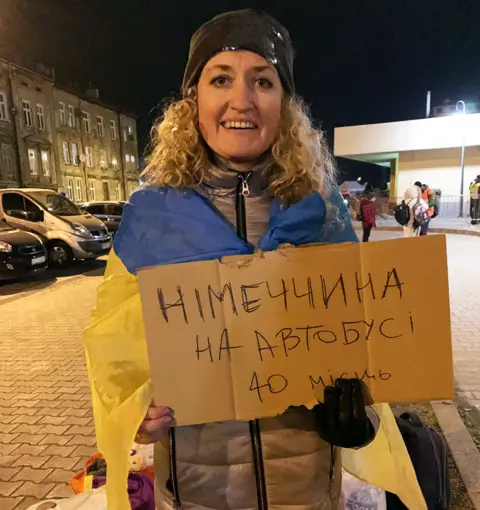 НІМЕЧЧИНА
НА АВТОБУСІ
40 місць